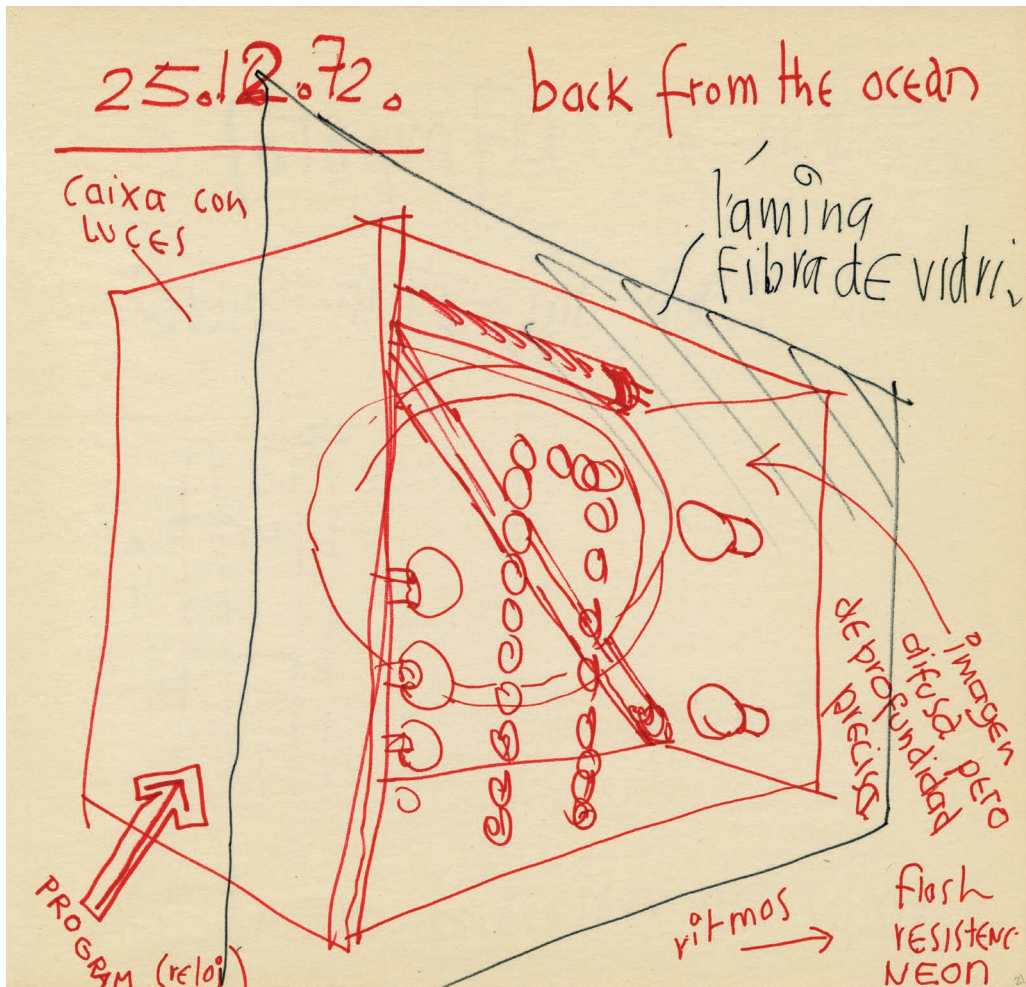 25.12.72.
back from the ocean
caixa con
LUCES
lámina
fibra de vidri
imagen
difusa pero
de profundidad
precisa
PROGRAM (reloj)
ritmos
flash
RESISTENC
NEON